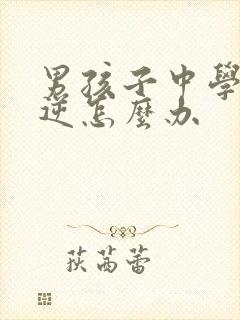 男孩子中學
逆怎麼办
荻苒蕾